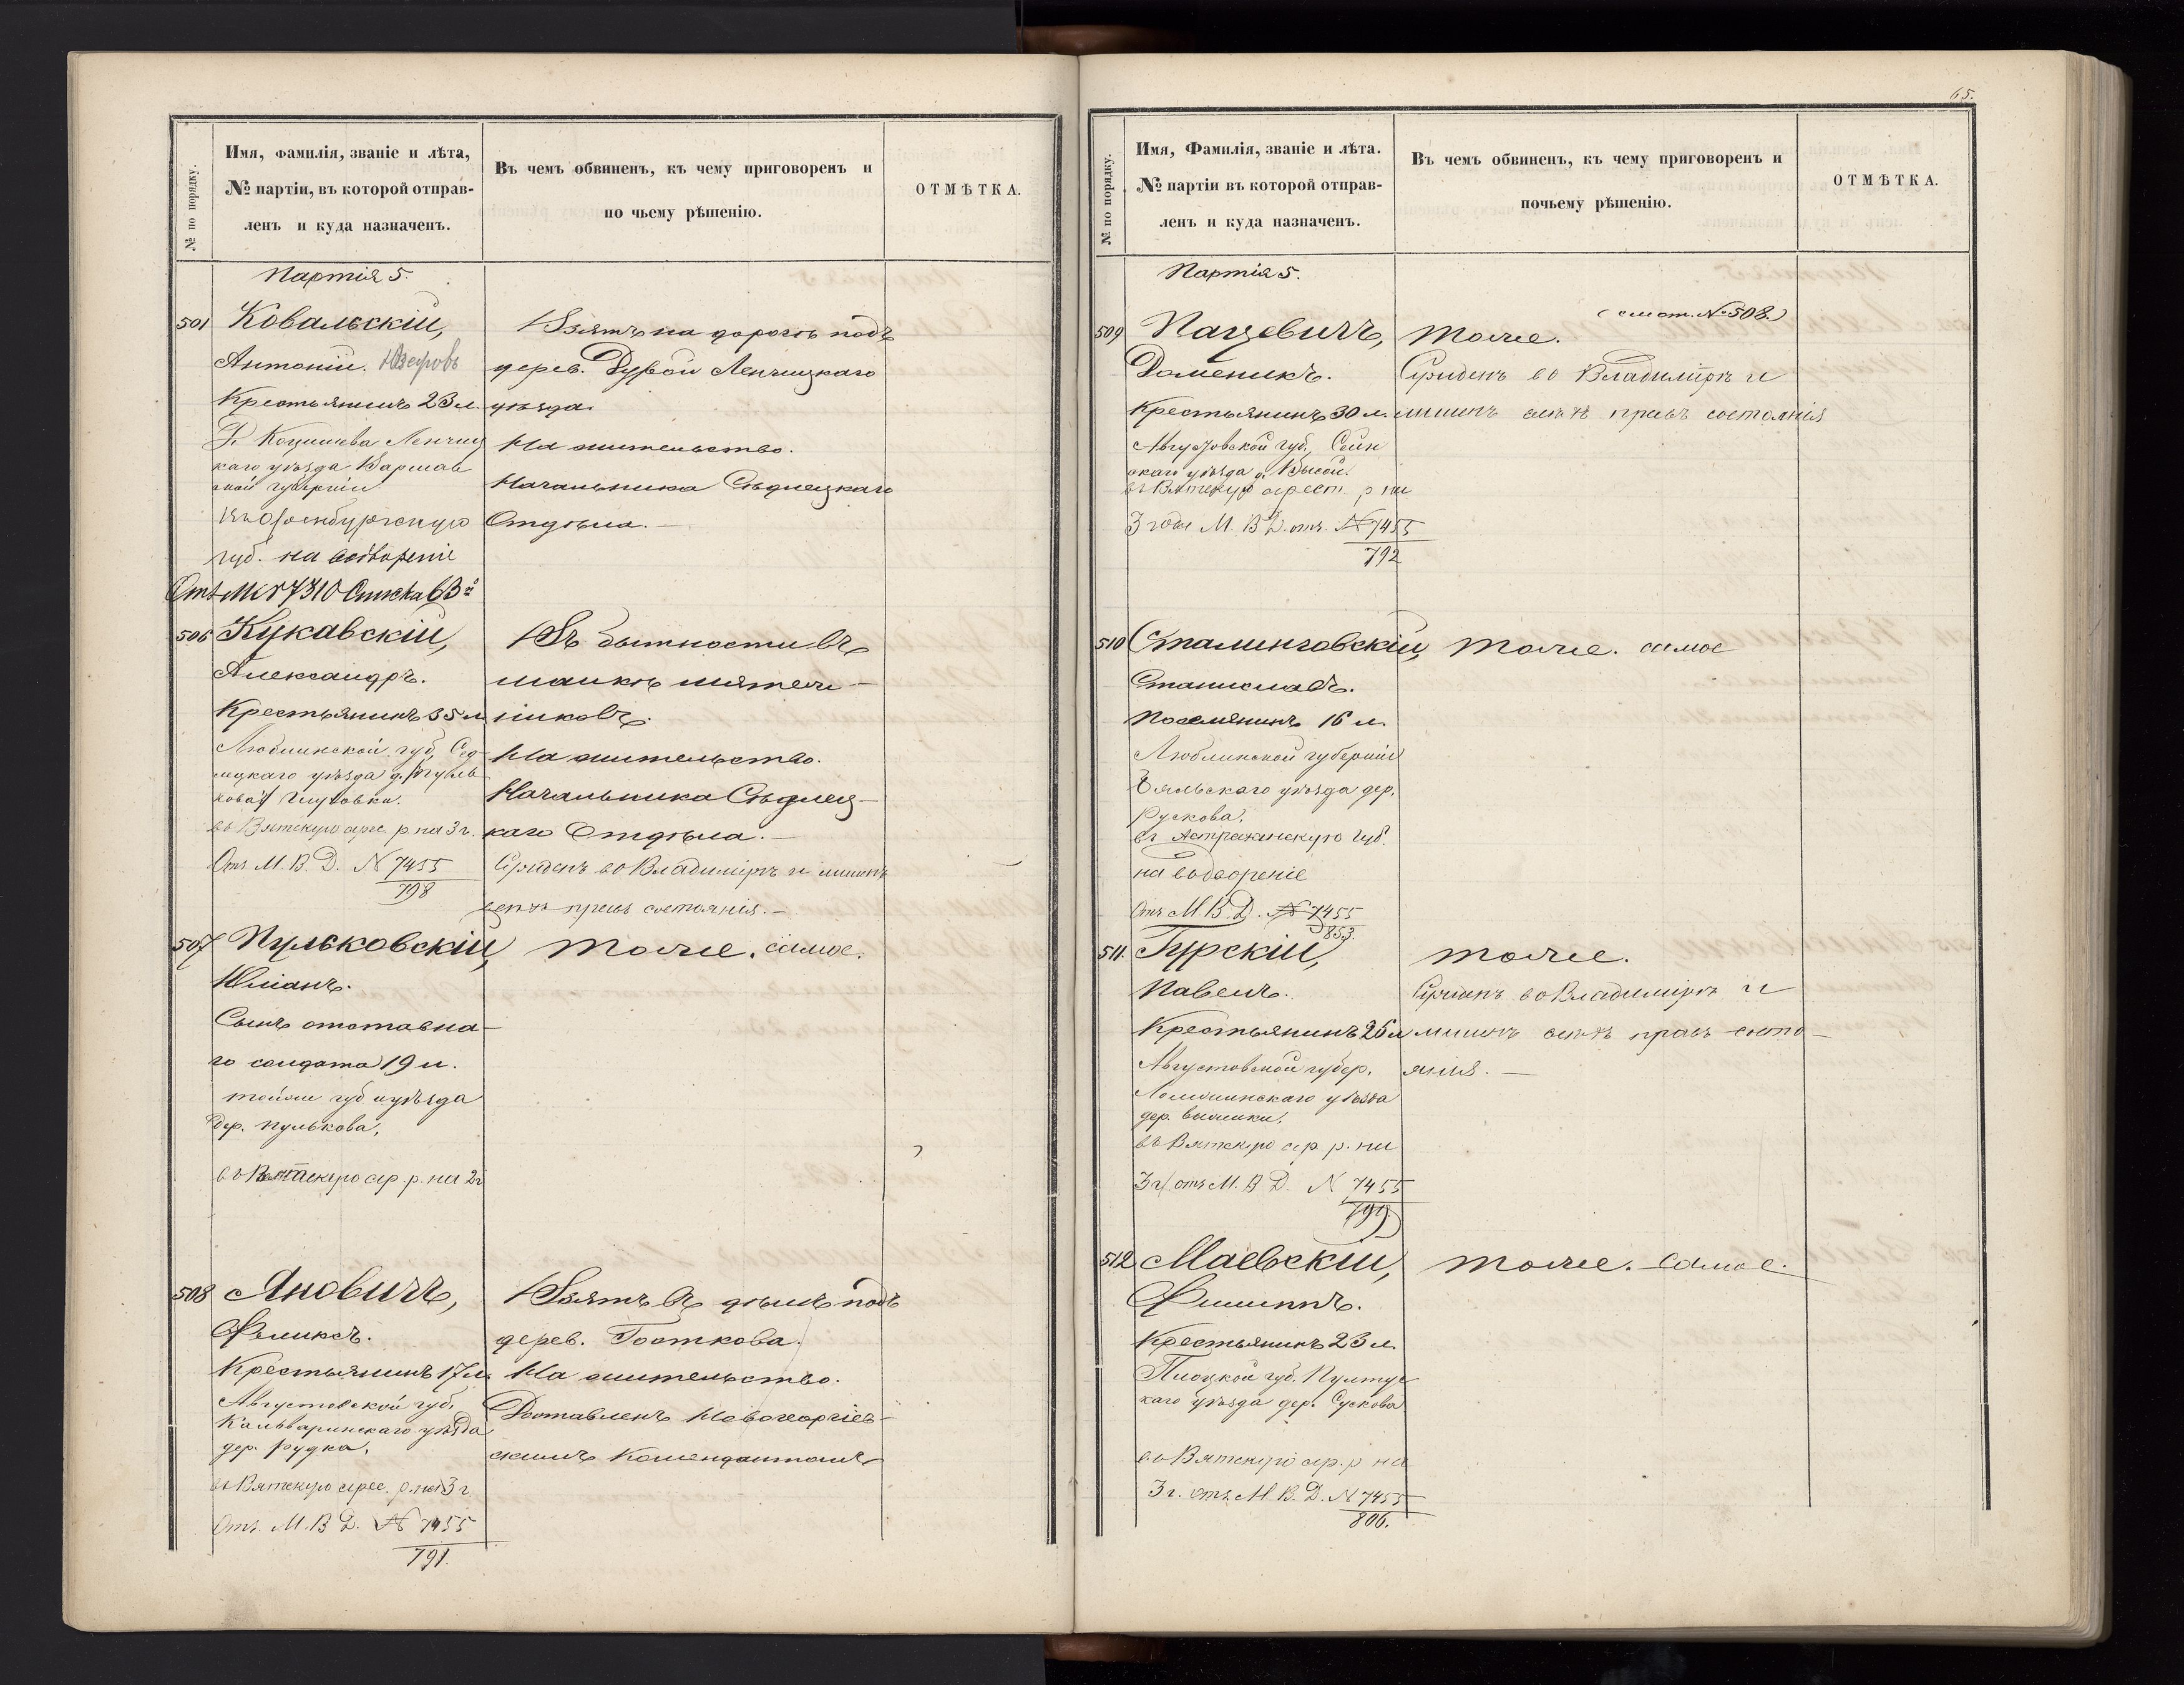 № по порядку.
Имя, фамилія, званіе и лѣта,
№ партіи, въ которой отправ-
ленъ и куда назначенъ.
Въ чемъ обвиненъ, къ чему приговоренъ и
по чьему рѣшенію.
ОТМѢТКА.
Партія 5.
501 Ковальскій,
Антоній.
Крестьянинъ 23 л.
каго уѣзда Варшав
ской губерніи
Въ Оренбургскую
губ. на водвореніе
Отъ № 7310 Списка 63й
Взятъ на дорогѣ подъ
дерев. Ленчицкаго
уѣзда.
На жительство.
Начальника Сѣдлецкаго
Отдѣла.
506 Кукавскій,
Александръ.
Крестьянинъ 35 л.
Люблинской губ. Сѣд
лецкаго уѣзда д.
въ Вятскую арес. р. на 3 г.
Отъ М. В. Д. № 7455
798
Въ бытности въ
шайкѣ мятеж-
никовъ.
На жительство.
Начальника Сѣдлец-
каго Отдѣла.
Сужденъ во Владимірѣ и лишенъ
всѣхъ правъ состоянія.
507 Пульковскій,
Юліанъ.
Сынъ отставна-
го солдата 19 л.
тойже губ и уѣзда
дер. Пулькова,
въ Вятскую ар. р. на 2 г
тоже. самое.
508 Яновичъ,
Феликсъ.
Крестьянинъ 17 л.
Августовской губ,
Кальварийнскаго уѣзда
дер. Рудка,
въ Вятскую арес. р. на 3 г.
Отъ. М. В Д. № 7455
791.
Взятъ въ дѣлѣ подъ
дерев.
На жительство.
Доставленъ Новогеоргіев-
скимъ Комендантомъ
65.
№ по порядку.
Имя, Фамилія, званіе и лѣта.
№ партіи въ которой отправ-
ленъ и куда назначенъ.
Въ чемъ обвиненъ, къ чему приговоренъ и
почьему рѣшенію.
ОТМѢТКА.
Партія 5.
509 Пацевичъ,
Доменикъ.
Крестьянинъ 30 л.
Августовской губ, Сейн
скаго уѣзда д.
въ Вятскую арест. р на
3 года М. В Д. отъ. № 7455
792
(смот. № 508.)
тоже.
Сужденъ во Владимірѣ и
лишенъ всѣхъ правъ состоянія
510 Сталинговскій,
Станиславъ.
Поселянинъ 16 л.
Люблинской губерніи
Бяльскаго уѣзда дер,
Рускова,
въ Астраханскую губ.
на водвореніе
Отъ М. В. Д. № 7455
853.
тоже. самое
511. Гурскій,
Павелъ.
Крестьянинъ 25 л
Августовской губер,
Ломжинскаго уѣзда
дер.
въ Вятскую ар. р. на
3 г. отъ М. В Д. № 7455
799
тоже.
Сужденъ во Владимірѣ и
лишенъ всѣхъ правъ состо-
янія.
512 Маевскій,
Филиппъ.
Крестьянинъ 23 л.
Плоцкой губ. Пултус
каго уѣзда дер. Сускова
въ Вятскую ар. р на
3 г. отъ. М. В. Д. № 7455
806.
тоже. самое.